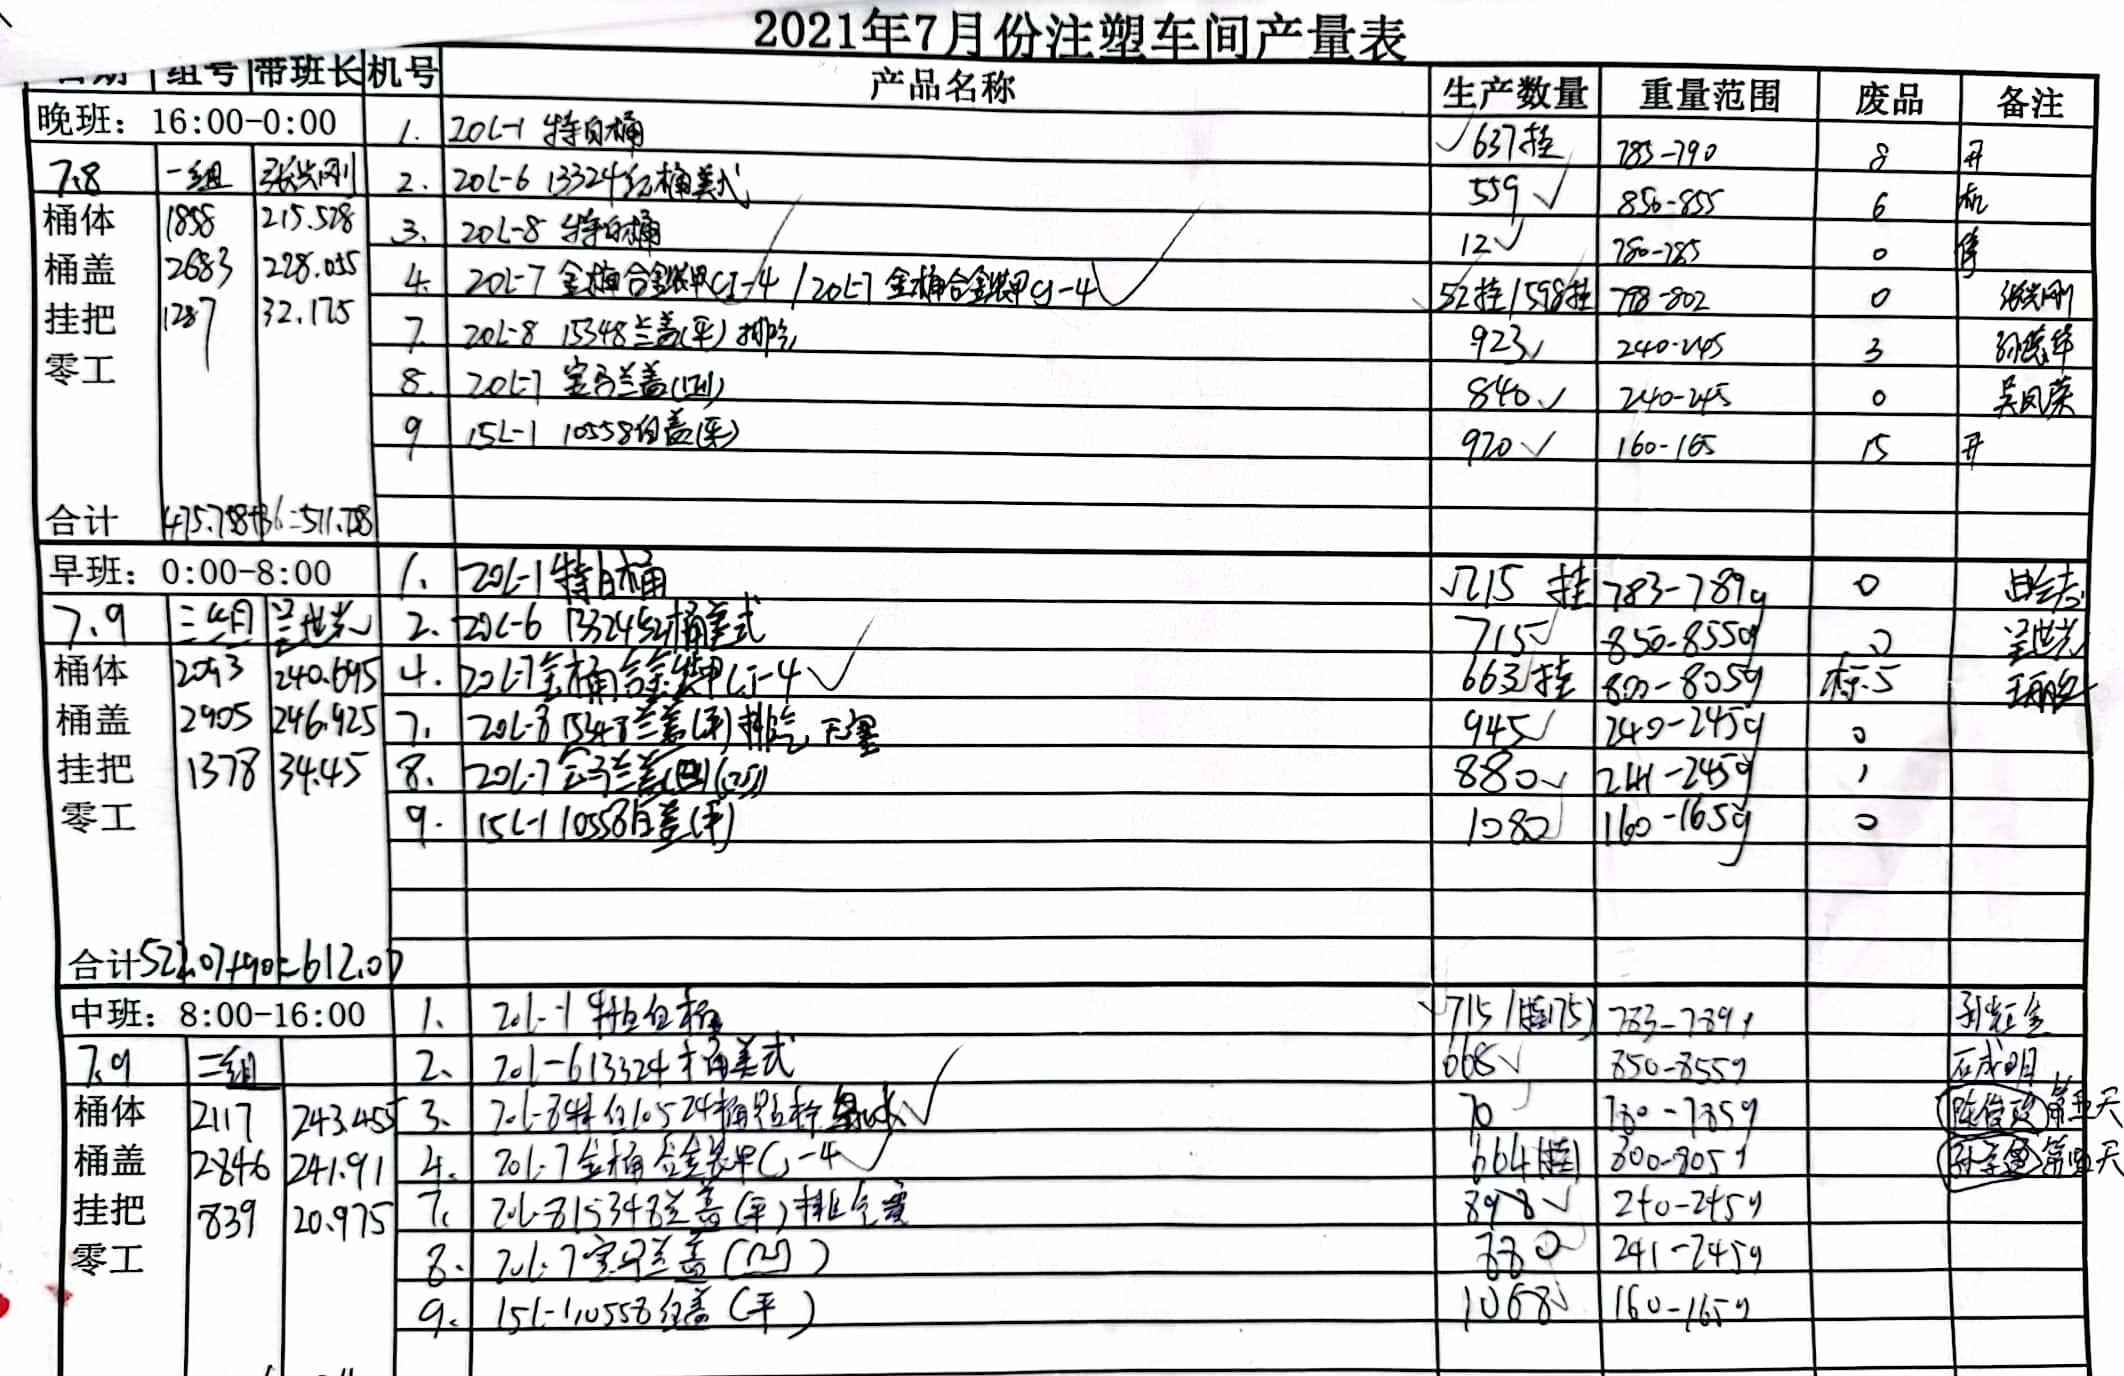 2021年7月份注塑车间产量表
组号 带班长 机号 产品名称 生产数量 重量范围 废品 备注
晚班：16:00-0:00 1. 20L-1 特白桶 637挂 783-790 8 开
7.8 一组 2. 20L-6 13324红桶美式 559 850-855 6 机
桶体 1858 215.528 3. 20L-8 特白桶 12 780-785 0
桶盖 2683 228.055 4. 20L-7 金桶合金装甲CJ-4 / 20L-7 金桶合金装甲CJ-4 52挂/598挂 798-802 0
挂把 1287 32.175 7. 20L-8 15348兰盖(平)排气 923 240-245 3
零工 8. 20L-7 宝马兰盖(凹) 840 240-245 0 吴凤荣
9 15L-1 10558白盖(平) 920 160-165 15 开
合计 475.758+36=511.758
早班：0:00-8:00 1. 20L-1特白桶 715 挂 783-789g 0
7.9 三组 2. 20L-6 13324红桶美式 715 850-855g 0
桶体 2093 240.695 4. 20L-7金桶合金装甲CJ-4 663挂 800-805g 标5
桶盖 2905 246.925 7. 20L-8 15348兰盖(平)排气 945 240-245g 0
挂把 1378 34.45 8. 20L-7宝马兰盖(凹) 880 241-245g 1
零工 9. 15L-1 10558白盖(平) 1080 160-165g 0
合计 522.07+90=612.07
中班：8:00-16:00 1. 20L-1特白桶 715/挂175 783-789g
7.9 二组 2. 20L-6 13324桶美式 668 850-855g
桶体 2117 243.455 3. 20L-8特白10524桶 70 780-785g 第五天
桶盖 2846 241.91 4. 20L-7金桶合金装甲CJ-4 664(挂) 800-805g 第四天
挂把 839 20.975 7. 20L-8 15348兰盖(平)排气 898 240-245g
零工 8. 20L-7宝马兰盖(凹) 880 241-245g
9. 15L-1 10558白盖(平) 1068 160-165g